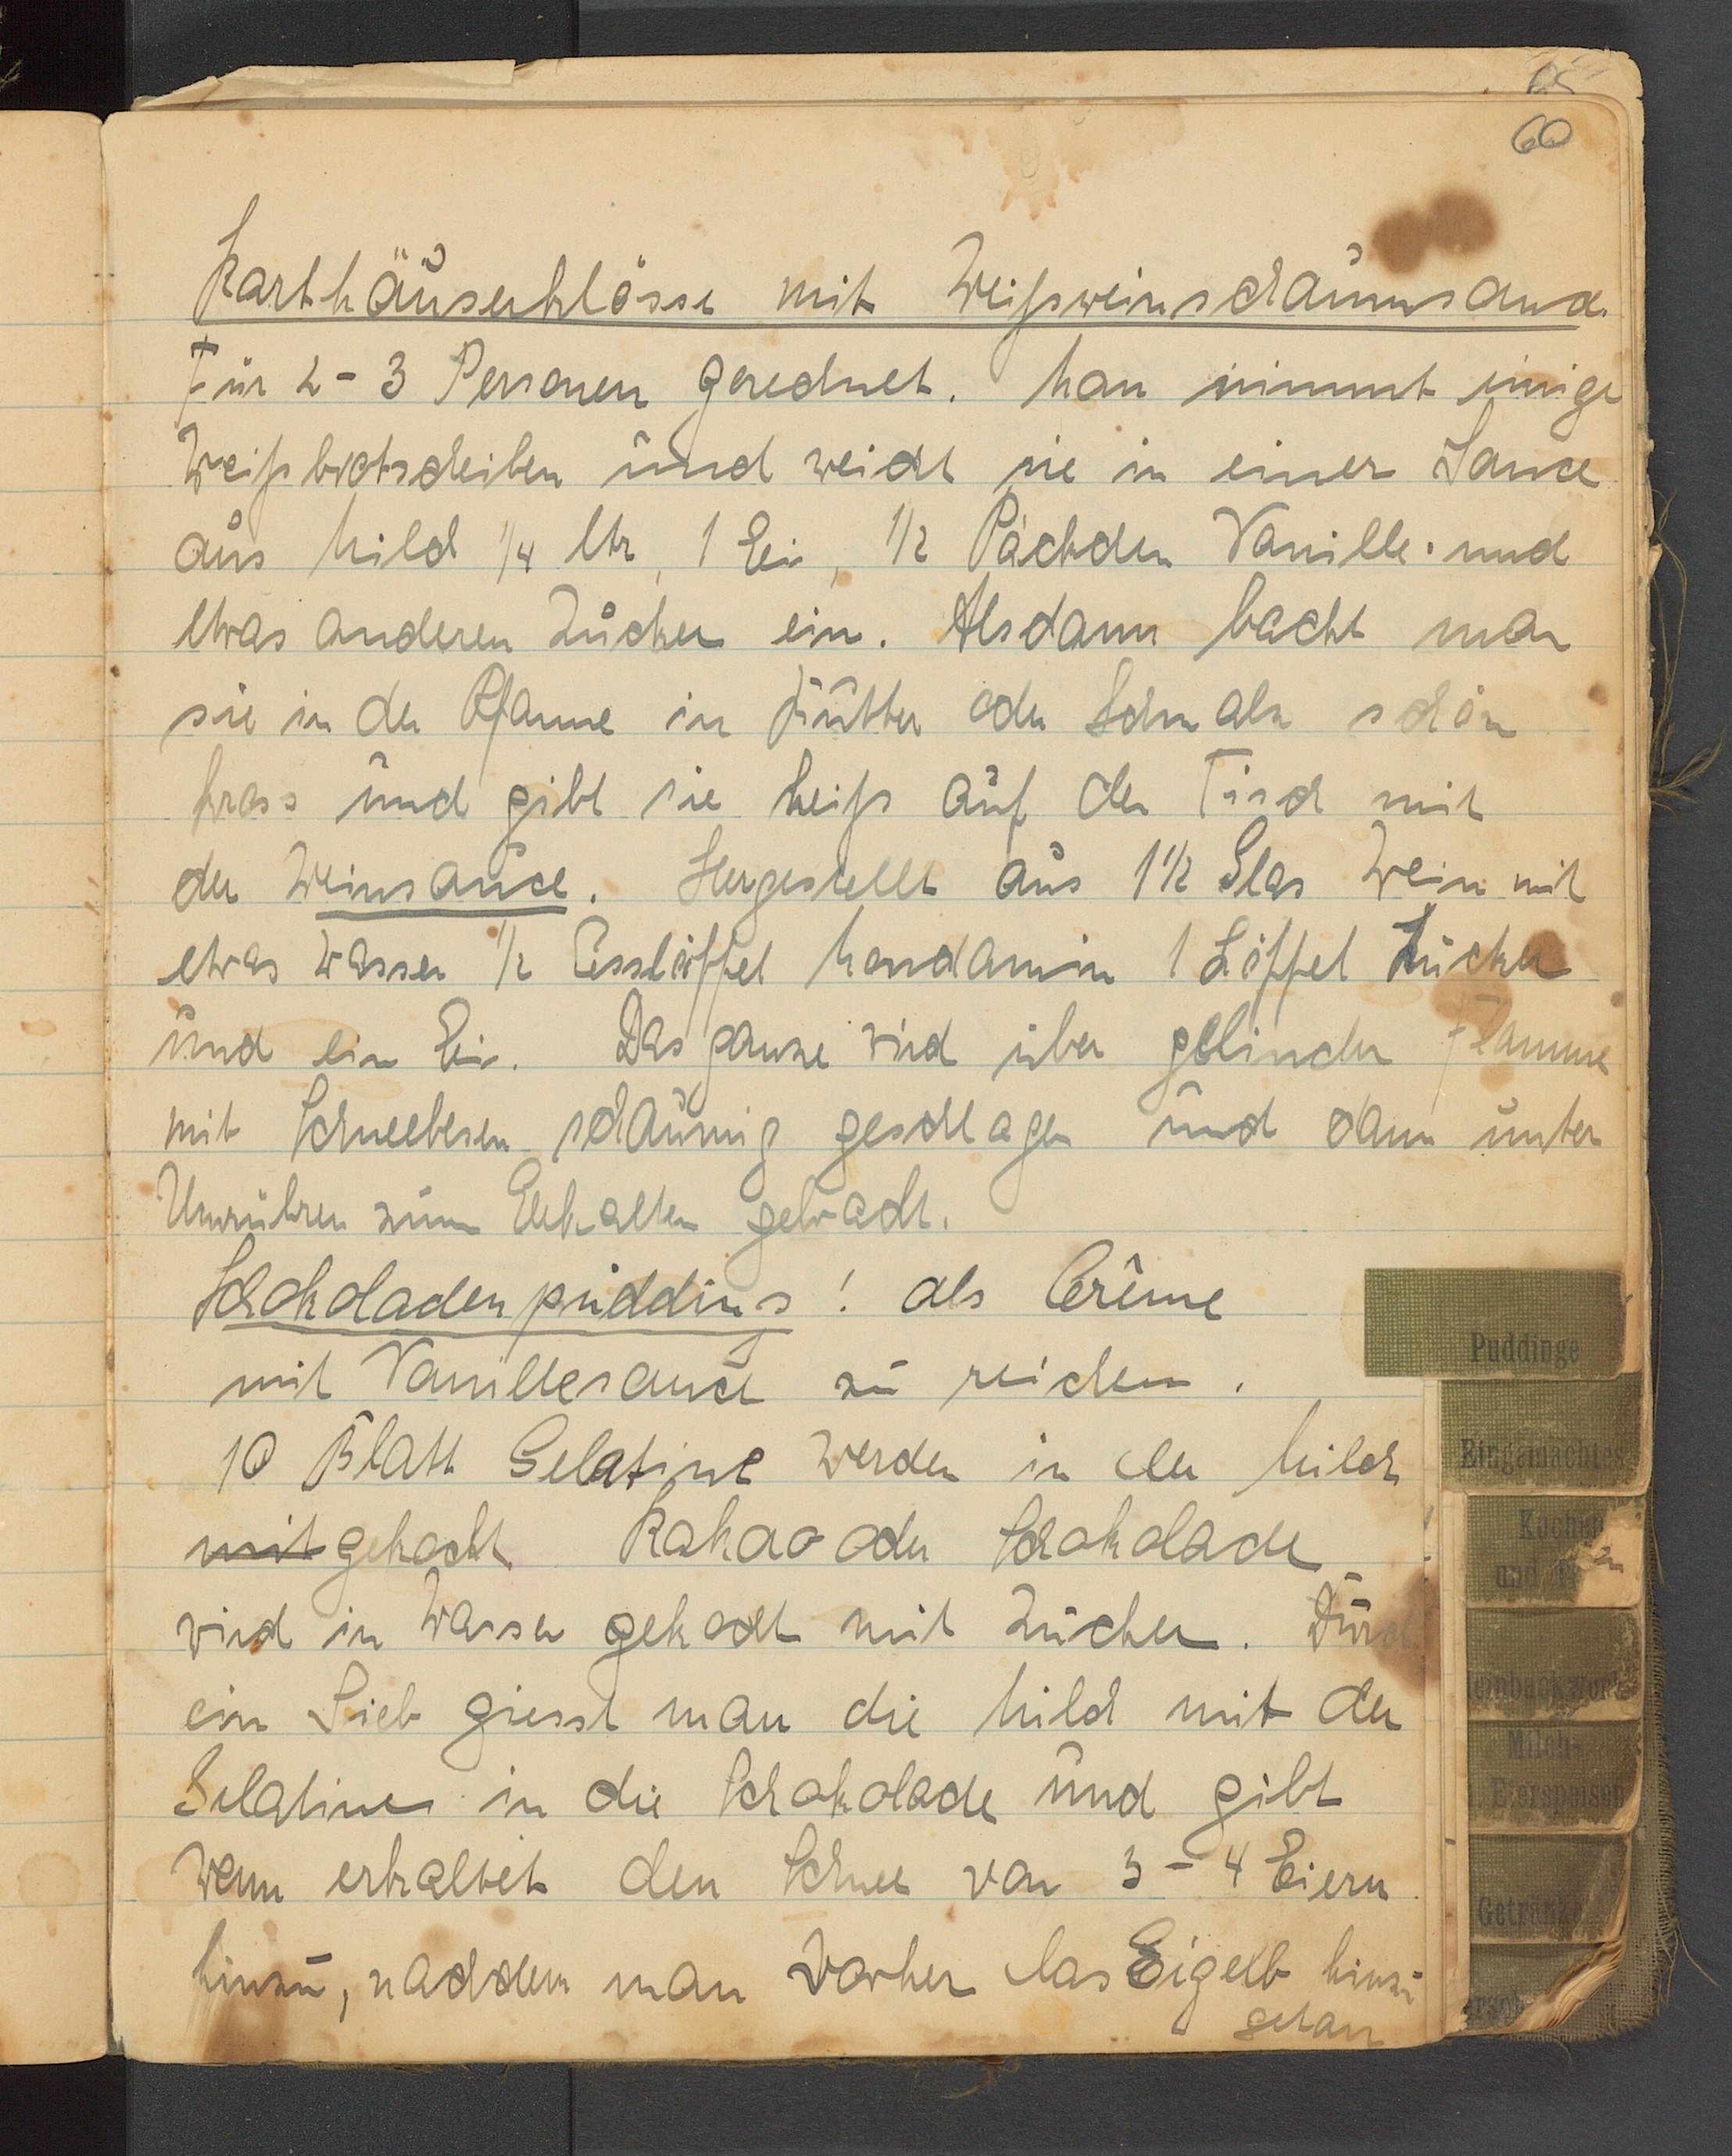 60
Karthäuserklösse mit Weißweinschaumsauce
Für 2-3 Personen gerechnet. Man nimmt einige
Weißbrotscheiben und weicht sie in einer Sauce
aus Milch 1/4 ltr, 1 Ei, 1/2 Päckchen Vanille- und
etwas anderen Zucker ein. Alsdann backt man
sie in der Pfanne in Butter oder Schmalz schön
kross und gibt sie heiß auf den Tisch mit
der Weinsauce. Hergestellt aus 1 1/2 Glas Wein mit
etwas Wasser 1/2 Esslöffel Mondamin 1 Löffel Zucker
und ein Ei. Das ganze wird über gelinder Flamme
mit Schneebesen schaumig geschlagen und dann unter
Umrühren zum Erkalten gebracht.
Schokoladenpuddings! als Crême
mit Vanillesauce zu reichen.
10 Blatt Gelatine werden in der Milch
mit gekocht Kakao oder Schokolade
wird in Wasser gekocht mit Zucker. Durch
ein Sieb giesst man die Milch mit der
Gelatine in die Schokolade und gibt
wenn erkaltet den Schnee von 3-4 Eiern
hinzu, nachdem man vorher das Eigelb hinzu
getan
Puddinge
Eingemachtes
Kuchen
und
Kleinbackwerk
Milch-
u. Eierspeisen
Getränke